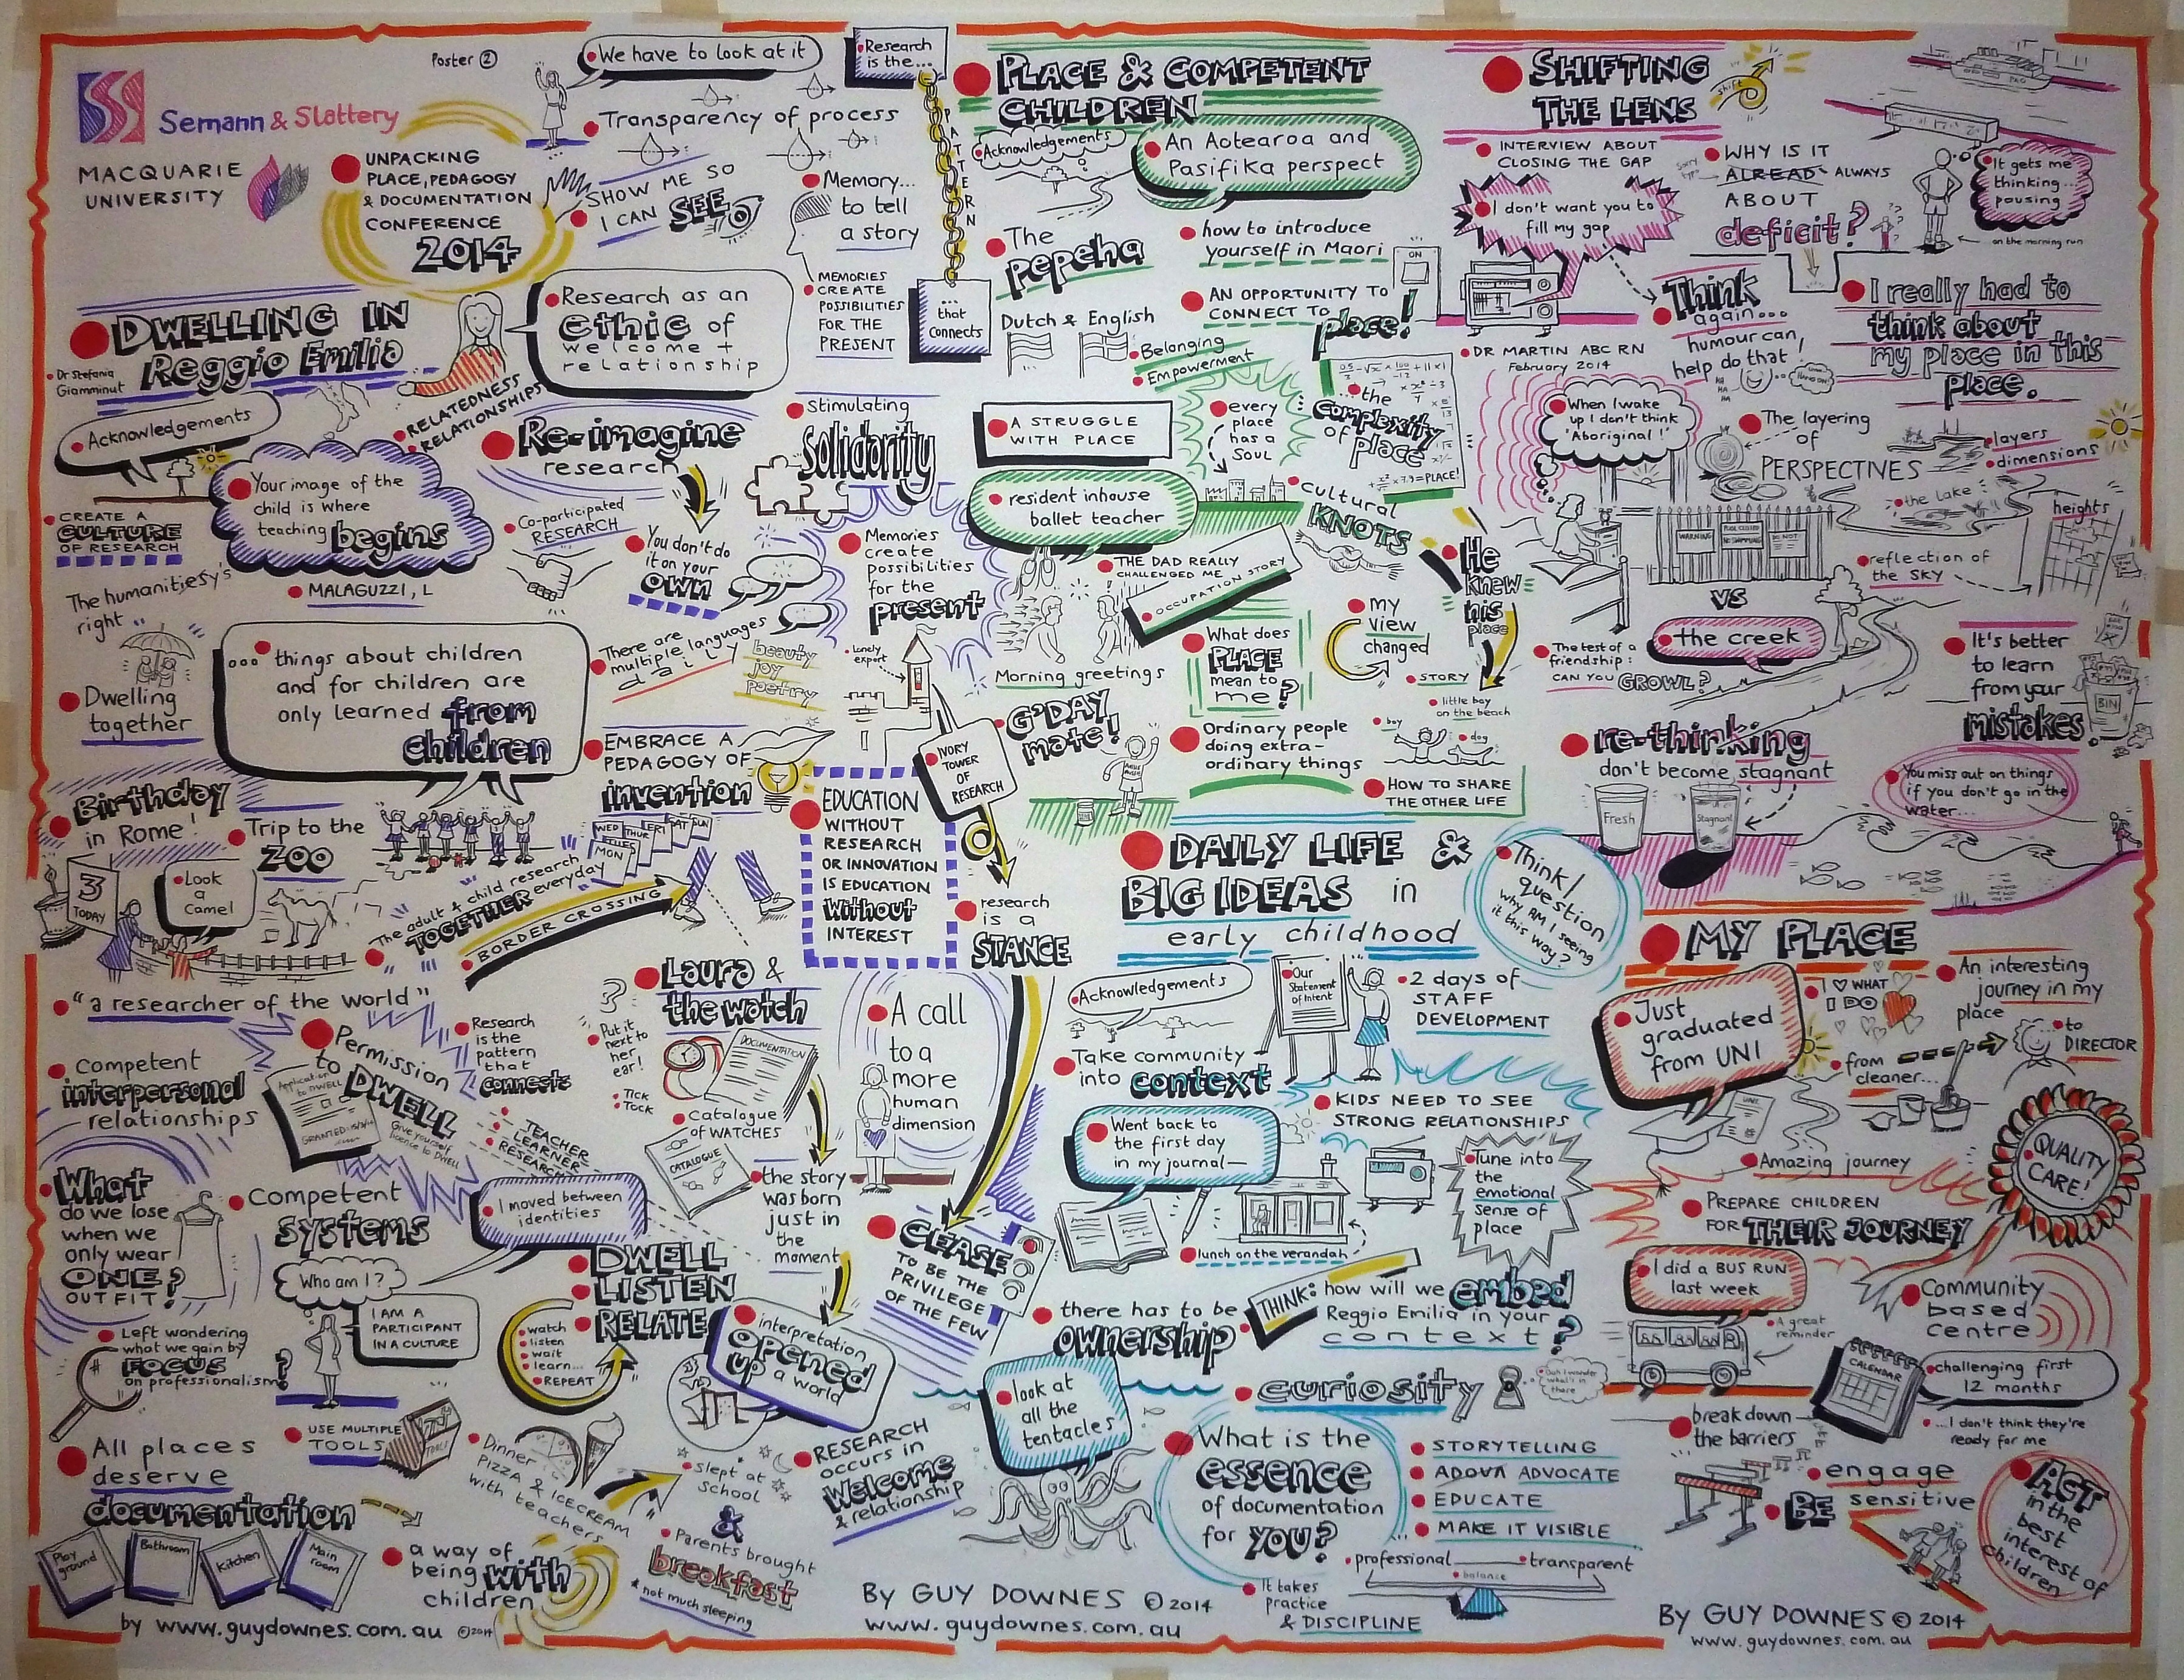 Poster 2
Semann & Slattery
MACQUARIE
UNIVERSITY
UNPACKING
PLACE, PEDAGOGY
& DOCUMENTATION
CONFERENCE
2014
We have to look at it
Transparency of process
SHOW ME SO
I CAN SEE
Memory...
to tell
a story
MEMORIES
CREATE
POSSIBILITIES
FOR THE
PRESENT
Research
is the...
PATTERN
... that
connects
DWELLING IN
Reggio Emilia
Dr Stefania
Giamminut
Research as an
ethic of
welcome +
relationship
RELATEDNESS
RELATIONSHIPS
Acknowledgements
Your image of the
child is where
teaching begins
MALAGUZZI, L
CREATE A
CULTURE
OF RESEARCH
The humanitiesy's
right
Dwelling
together
... things about children
and for children are
only learned from
children
Re-imagine
research
Co-participated
RESEARCH
You don't do
it on your
own
Stimulating
Solidarity
Memories
create
possibilities
for the
present
There are
multiple languages
daily
beauty
joy
poetry
Lonely
expert
IVORY
TOWER
OF
RESEARCH
EMBRACE A
PEDAGOGY OF
invention
EDUCATION
WITHOUT
RESEARCH
OR INNOVATION
IS EDUCATION
Without
INTEREST
research
is a
STANCE
Birthday
in Rome!
3
TODAY
Trip to the
ZOO
Look
a
Camel
MON
TUES
WED
THUR
FRI
SAT
SUN
The adult & child research
TOGETHER everyday
BORDER CROSSING
"a researcher of the world"
Competent
interpersonal
relationships
Permission
to DWELL
Application
to DWELL
GRANTED
Give yourself
licence to DWELL
Research
is the
pattern
that
connects
TEACHER
LEARNER
RESEARCHER
Put it
next to
her
ear!
TICK
TOCK
Laura &
the watch
DOCUMENTATION
Catalogue
of WATCHES
CATALOGUE
the story
was born
just in
the
moment
A call
to a
more
human
dimension
CEASE
TO BE THE
PRIVILEGE
OF THE FEW
What
do we lose
when we
only wear
ONE?
OUTFIT?
Competent
systems
Who am I?
I AM A
PARTICIPANT
IN A CULTURE
I moved between
identities
DWELL
LISTEN
RELATE
watch
listen
wait
learn...
REPEAT
interpretation
opened
up a world
Left wondering
what we gain by
FOCUS
on professionalism?
All places
deserve
documentation
Play
ground
Bathroom
Kitchen
Main
room
USE MULTIPLE
TOOLS
TOOLS
Dinner
PIZZA & ICECREAM
with teachers
Slept at
School
&
Parents brought
breakfast
* not much sleeping
RESEARCH
occurs in
Welcome
& relationship
a way of
being with
children
by www.guydownes.com.au ©2014
PLACE & COMPETENT
CHILDREN
Acknowledgements
An Aotearoa and
Pasifika perspect
The
pepeha
how to introduce
yourself in Maori
Dutch & English
AN OPPORTUNITY TO
CONNECT TO
place!
ON
Belonging
Empowerment
A STRUGGLE
WITH PLACE
every
place
has a
SOUL
the
complexity
of place
= PLACE!
resident inhouse
ballet teacher
cultural
KNOTS
THE DAD REALLY
CHALLENGED ME
OCCUPATION STORY
He
knew
his
place
Morning greetings
G'DAY,
mate!
What does
PLACE
mean to
me?
my
view
changed
STORY
little boy
on the beach
boy
dog
Ordinary people
doing extra-
ordinary things
HOW TO SHARE
THE OTHER LIFE
DAILY LIFE &
BIG IDEAS in
early childhood
Think/
question
why AM I seeing
it this way?
Acknowledgements
Our
Statement
of Intent
2 days of
STAFF
DEVELOPMENT
Take community
into context
KIDS NEED TO SEE
STRONG RELATIONSHIPS
Went back to
the first day
in my journal—
Tune into
the
emotional
sense of
place
lunch on the verandah
there has to be
ownership
THINK:
how will we embed
Reggio Emilia in your
context?
look at
all the
tentacles
curiosity
Ooh I wonder
what's in
there
What is the
essence
of documentation
for YOU?
STORYTELLING
ADOVA ADVOCATE
EDUCATE
MAKE IT VISIBLE
professional
transparent
balance
It takes
practice
& DISCIPLINE
BY GUY DOWNES © 2014
www.guydownes.com.au
SHIFTING
THE LENS
shift
INTERVIEW ABOUT
CLOSING THE GAP
I don't want you to
fill my gap
WHY IS IT
ALREAD ALWAYS
ABOUT
deficit?
It gets me
thinking...
pausing
on the morning run
DR MARTIN ABC RN
February 2014
Think
again...
humour can
help do that
I really had to
think about
my place in this
place.
When I wake
up I don't think
'Aboriginal!'
The layering
of
PERSPECTIVES
layers
dimensions
the Lake
heights
WARNING
POOL CLOSED
NO SWIMMING
DO NOT
reflection of
the SKY
VS
the creek
The test of a
friendship:
CAN YOU GROWL?
It's better
to learn
from your
mistakes
BIN
re-thinking
don't become stagnant
Fresh
Stagnant
You miss out on things
if you don't go in the
water...
MY PLACE
Just
graduated
from UNI
I ♡ WHAT
I DO
An interesting
journey in my
place
from
cleaner...
to
DIRECTOR
Amazing journey
QUALITY
CARE!
PREPARE CHILDREN
FOR THEIR JOURNEY
I did a BUS RUN
last week
A great
reminder
Community
based
centre
CALENDAR
challenging first
12 months
... I don't think they're
ready for me
break down
the barriers
engage
BE sensitive
ACT
in the
best
interest of
children
BY GUY DOWNES © 2014
www.guydownes.com.au